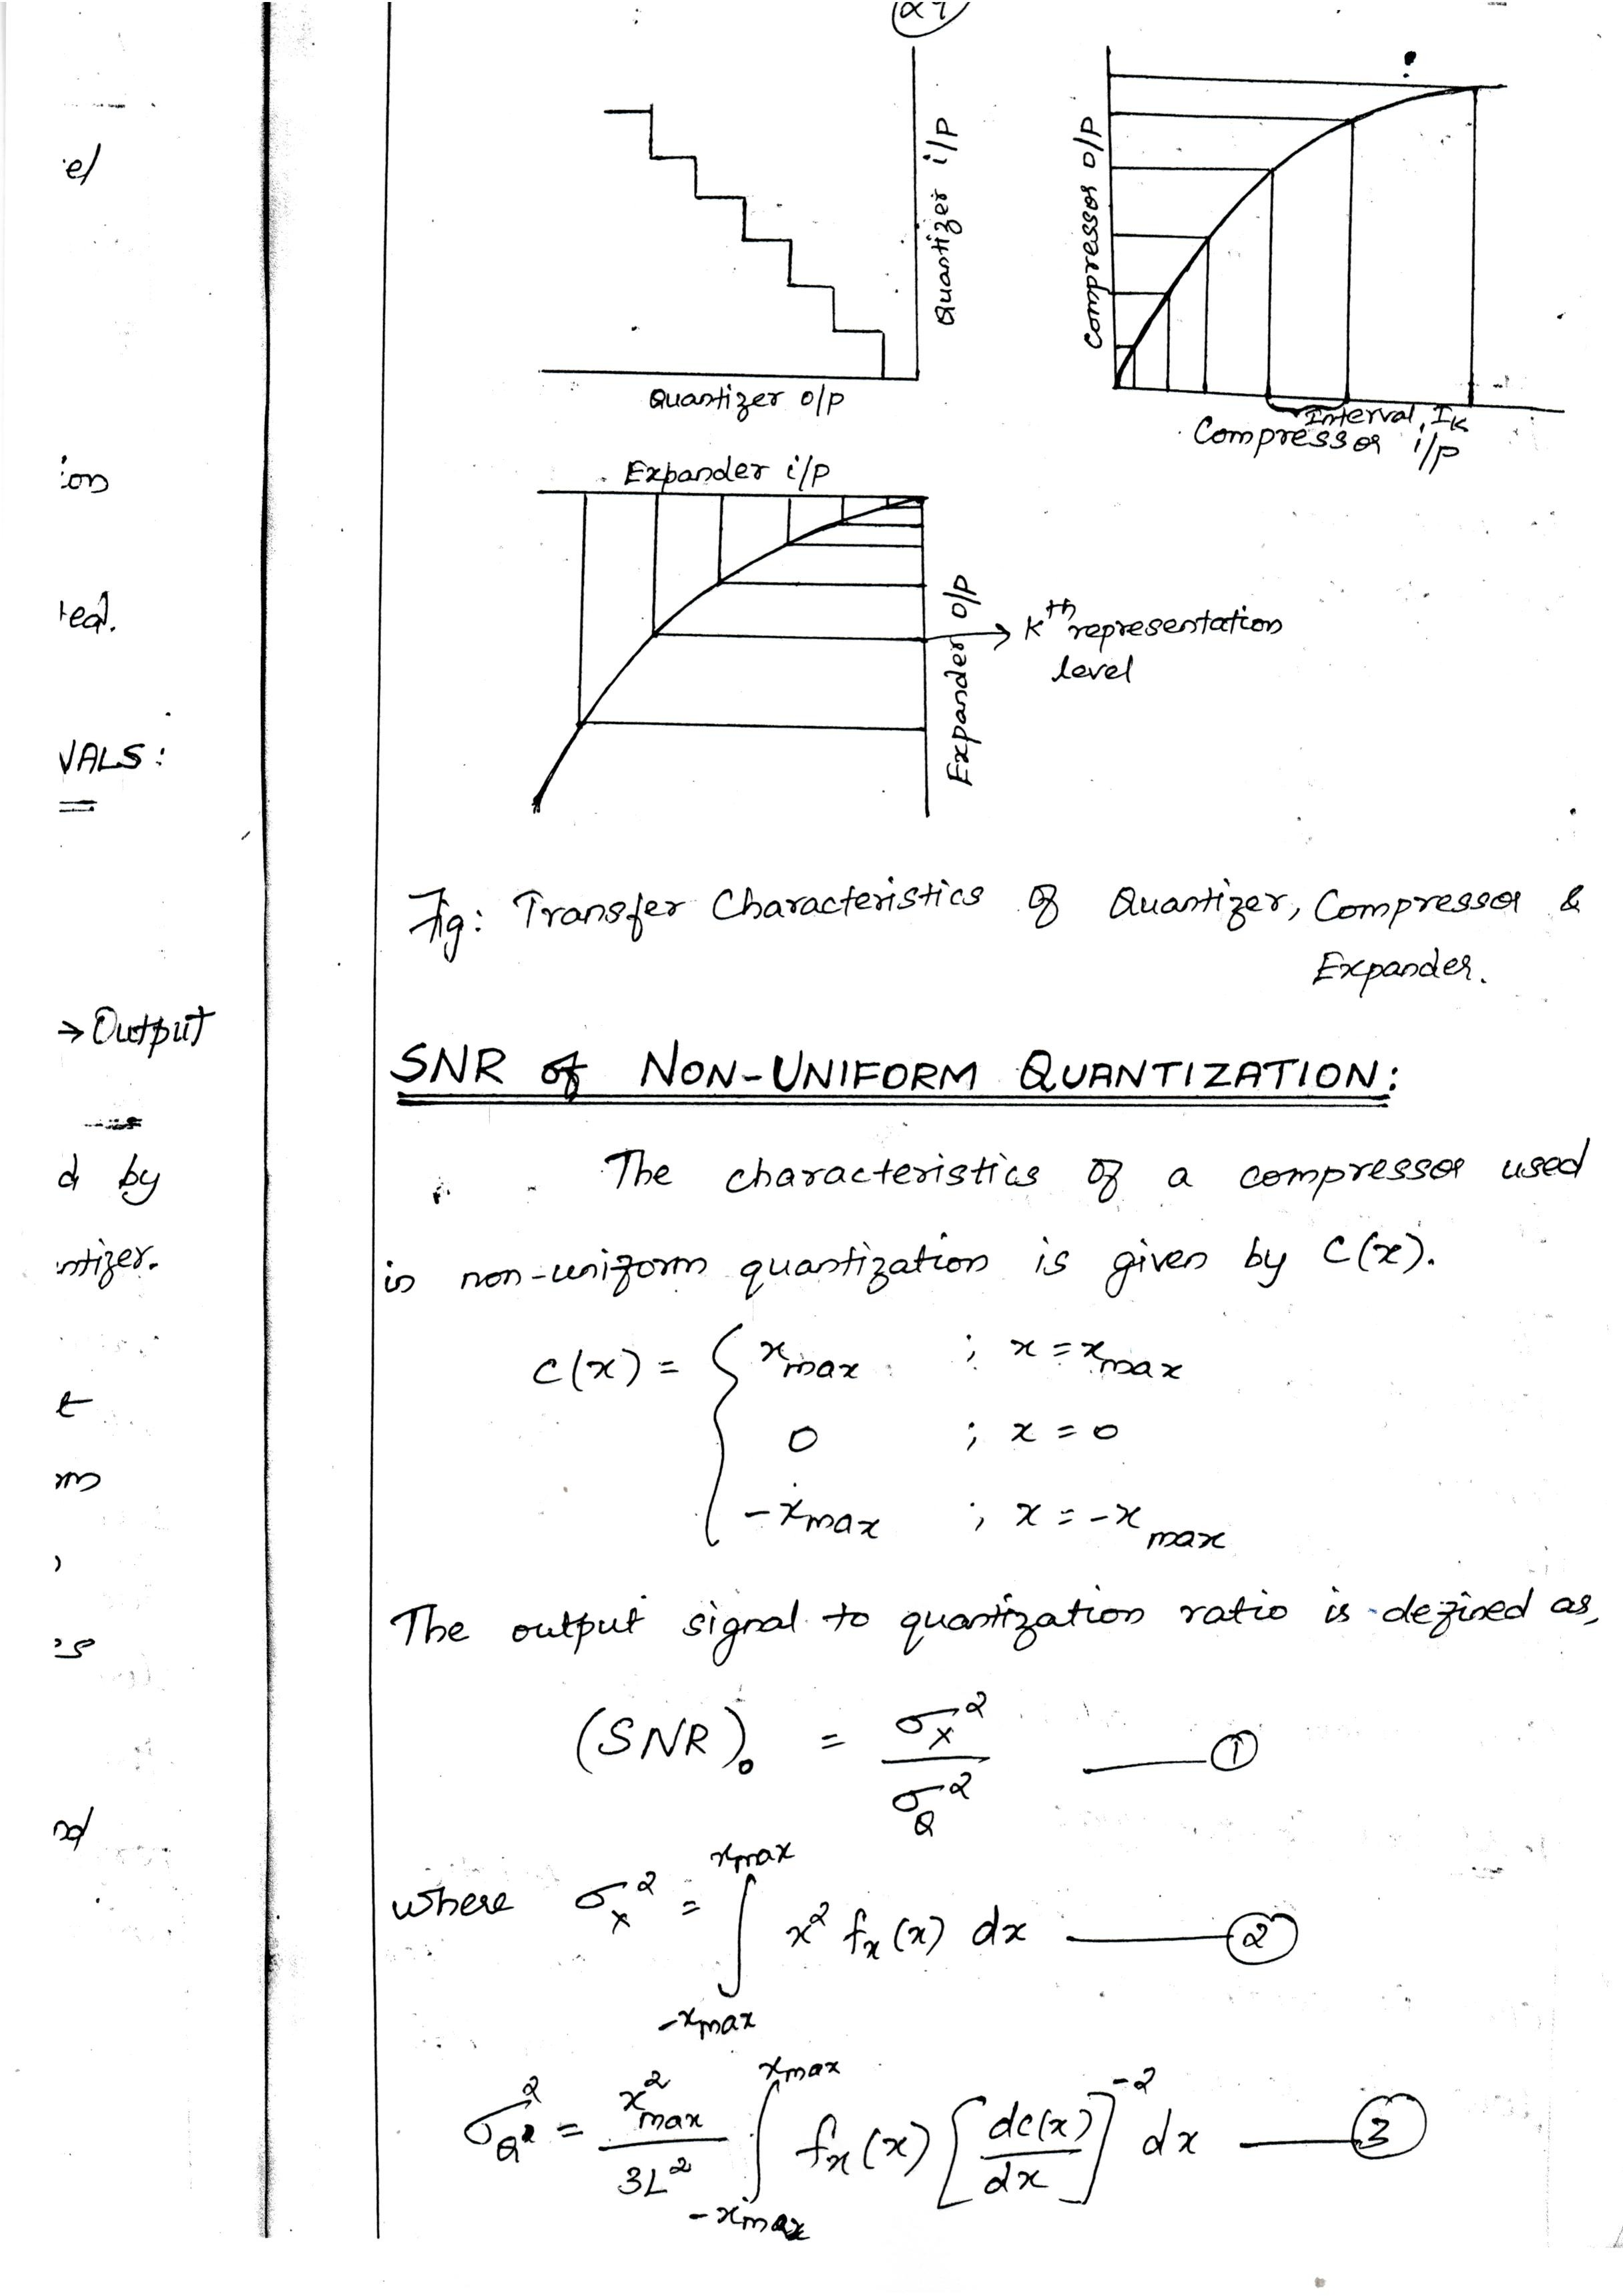 e/
ion
ted.
VALS:
→ Output
d by
ntizer.
t
m
)
es
nd
Quantizer i/p
Quantizer o/p
Compressor o/p
Interval, Iₖ
Compressor i/p
Expander i/p
Expander o/p
→ Kᵗʰ representation
level
Fig: Transfer Characteristics of Quantizer, Compressor &
Expander.
SNR of NON-UNIFORM QUANTIZATION:
The characteristics of a compressor used
in non-uniform quantization is given by C(x).
C(x) = { x_max ; x = x_max
0 ; x = 0
-x_max ; x = -x_max
The output signal to quantization ratio is defined as,
(SNR)₀ = σ_X² / σ_Q² —— ①
where σ_x² = ∫_{-x_max}^{x_max} x² f_x(x) dx —— ②
σ_Q² = x²_max / 3L² ∫_{-x_max}^{x_max} f_x(x) [dc(x)/dx]⁻² dx —— ③